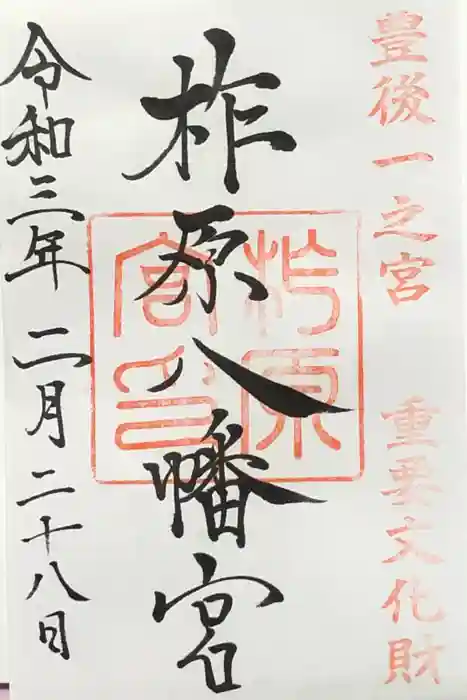 豊後一之宮 重要文化財
柞原八幡宮
柞原宮印
令和三年 二月二十八日